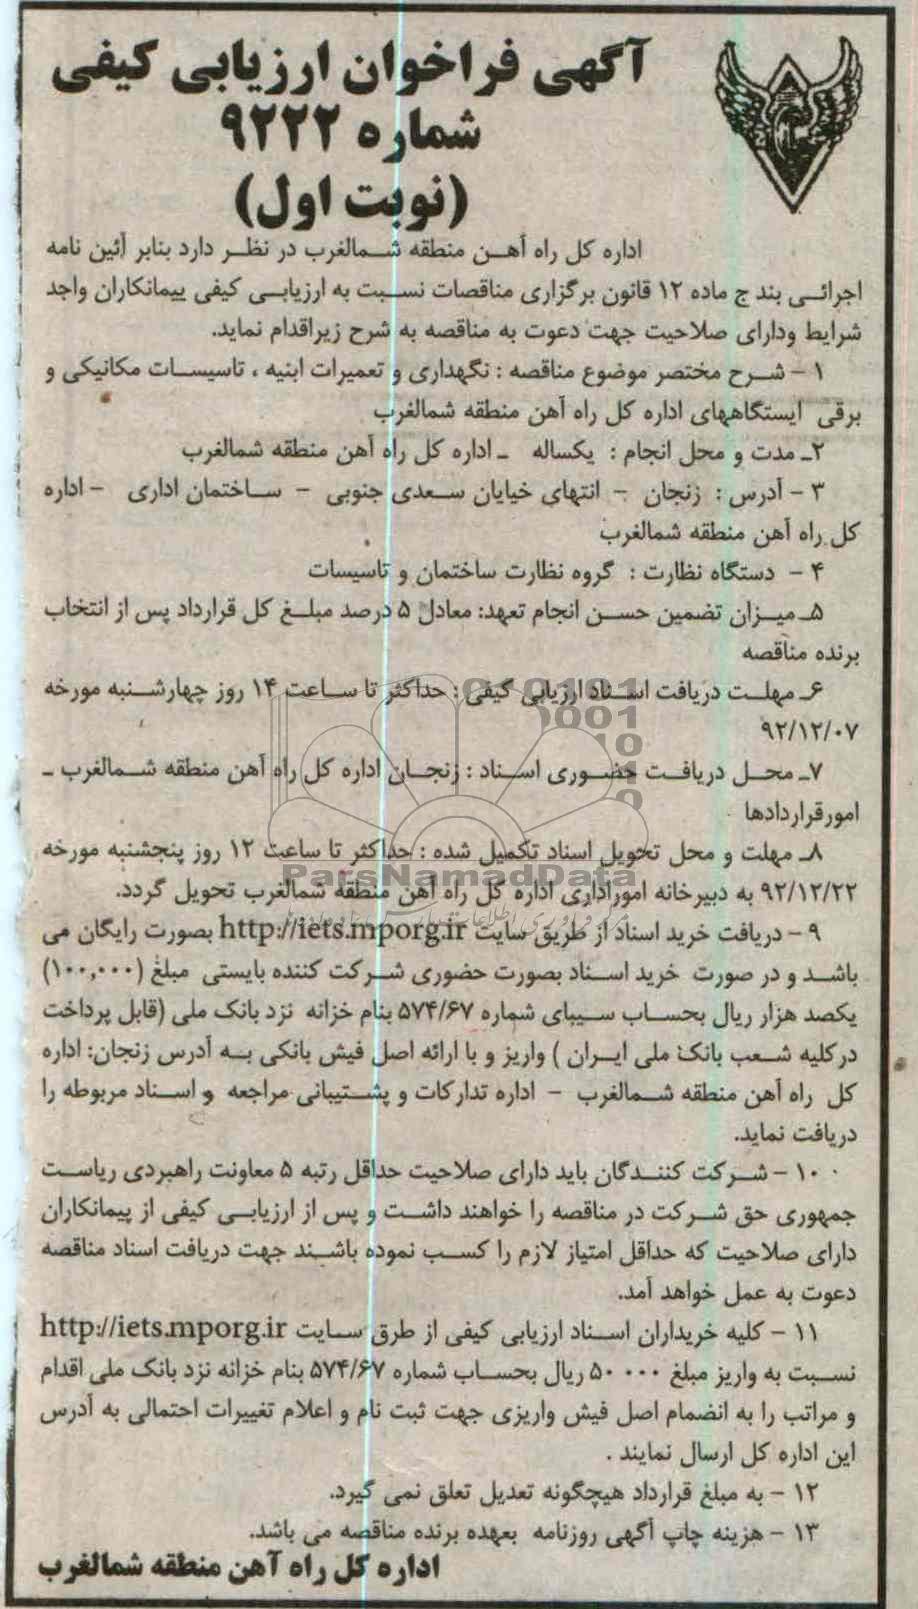 آگهی فراخوان ارزیابی کیفی
شماره ۹۲۲۲
(نوبت اول)
اداره کل راه آهن منطقه شمالغرب در نظر دارد بنابر آئین نامه
اجرائی بند ج ماده ۱۲ قانون برگزاری مناقصات نسبت به ارزیابی کیفی پیمانکاران واجد
شرایط ودارای صلاحیت جهت دعوت به مناقصه به شرح زیراقدام نماید.
۱ – شرح مختصر موضوع مناقصه : نگهداری و تعمیرات ابنیه ، تاسیسات مکانیکی و
برقی ایستگاههای اداره کل راه آهن منطقه شمالغرب
۲ـ مدت و محل انجام : یکساله ـ اداره کل راه آهن منطقه شمالغرب
۳ – آدرس : زنجان – انتهای خیابان سعدی جنوبی – ساختمان اداری – اداره
کل راه آهن منطقه شمالغرب
۴ – دستگاه نظارت : گروه نظارت ساختمان و تاسیسات
۵ـ میزان تضمین حسن انجام تعهد: معادل ۵ درصد مبلغ کل قرارداد پس از انتخاب
برنده مناقصه
۶ـ مهلت دریافت اسناد ارزیابی کیفی : حداکثر تا ساعت ۱۴ روز چهارشنبه مورخه
۹۲/۱۲/۰۷
۷ـ محل دریافت حضوری اسناد : زنجان اداره کل راه آهن منطقه شمالغرب ـ
امورقراردادها
۸ـ مهلت و محل تحویل اسناد تکمیل شده : حداکثر تا ساعت ۱۲ روز پنجشنبه مورخه
ParsNamadData
۹۲/۱۲/۲۲ به دبیرخانه اموراداری اداره کل راه آهن منطقه شمالغرب تحویل گردد.
۹ – دریافت خرید اسناد از طریق سایت http://iets.mporg.ir بصورت رایگان می
باشد و در صورت خرید اسناد بصورت حضوری شرکت کننده بایستی مبلغ (۱۰۰,۰۰۰)
یکصد هزار ریال بحساب سیبای شماره ۵۷۴/۶۷ بنام خزانه نزد بانک ملی (قابل پرداخت
درکلیه شعب بانک ملی ایران ) واریز و با ارائه اصل فیش بانکی به آدرس زنجان: اداره
کل راه آهن منطقه شمالغرب – اداره تدارکات و پشتیبانی مراجعه و اسناد مربوطه را
دریافت نماید.
۱۰ – شرکت کنندگان باید دارای صلاحیت حداقل رتبه ۵ معاونت راهبردی ریاست
جمهوری حق شرکت در مناقصه را خواهند داشت و پس از ارزیابی کیفی از پیمانکاران
دارای صلاحیت که حداقل امتیاز لازم را کسب نموده باشند جهت دریافت اسناد مناقصه
دعوت به عمل خواهد آمد.
۱۱ – کلیه خریداران اسناد ارزیابی کیفی از طرق سایت http://iets.mporg.ir
نسبت به واریز مبلغ ۵۰ ۰۰۰ ریال بحساب شماره ۵۷۴/۶۷ بنام خزانه نزد بانک ملی اقدام
و مراتب را به انضمام اصل فیش واریزی جهت ثبت نام و اعلام تغییرات احتمالی به آدرس
این اداره کل ارسال نمایند .
۱۲ – به مبلغ قرارداد هیچگونه تعدیل تعلق نمی گیرد.
۱۳ – هزینه چاپ آگهی روزنامه بعهده برنده مناقصه می باشد.
اداره کل راه آهن منطقه شمالغرب